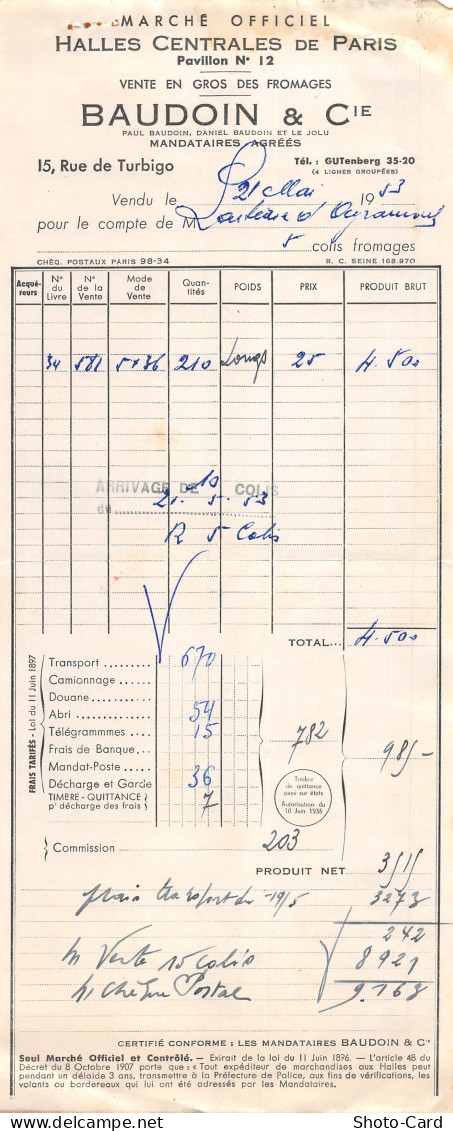 MARCHÉ OFFICIEL
HALLES CENTRALES DE PARIS
Pavillon N° 12
VENTE EN GROS DES FROMAGES
BAUDOIN & CIE
PAUL BAUDOIN, DANIEL BAUDOIN ET LE JOLU
MANDATAIRES AGRÉÉS
15, Rue de Turbigo Tél. : GUTenberg 35-20
(4 LIGNES GROUPÉES)
Vendu le 21 Mai 1953
pour le compte de M
5 colis fromages
CHÈQ. POSTAUX PARIS 98-34 R. C. SEINE 168.970
Acquéreurs N° du Livre N° de la Vente Mode de Vente Quantités POIDS PRIX PRODUIT BRUT
34 581 5 x 36 210 Longs 25 4.500
ARRIVAGE DE 10 COLIS
du 21.5.53
R 5 Colis
TOTAL... 4.500
FRAIS TARIFÉS - Loi du 11 Juin 1897
Transport ......... 670
Camionnage ......
Douane ...........
Abri ............... 54
Télégrammmes .... 15
Frais de Banque...
Mandat-Poste......
Décharge et Garde 36
TIMERE - QUITTANCE 7
pr décharge des frais
782
985-
Timbre de quittance payé sur états
Autorisation du 10 Juin 1938
Commission 203
PRODUIT NET 3515
frais transport du 19/5 3273
242
n/ Vente 15 colis 8921
n/ chèque Postal 9.163
CERTIFIÉ CONFORME : LES MANDATAIRES BAUDOIN & Cie
Seul Marché Officiel et Contrôlé. — Extrait de la loi du 11 Juin 1896. — L'article 48 du
Décret du 8 Octobre 1907 porte que : « Tout expéditeur de marchandises aux Halles peut
pendant un délaide 3 ans, transmettre à la Préfecture de Police, aux fins de vérifications, les
volants ou bordereaux qui lui ont été adressés par les Mandataires.
DELCAMPE.NET Shoto-Card